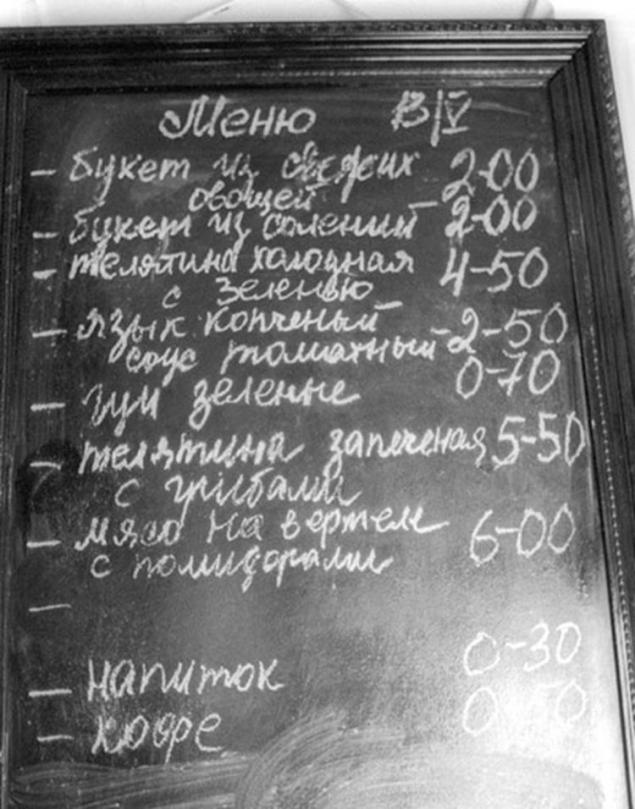 Меню 13/V
- букет из свежих 2-00
овощей
- букет из солений 2-00
- телятина холодная 4-50
с зеленью
- язык копченый 2-50
соус томатный
- щи зеленые 0-70
- телятина запеченая 5-50
с грибами
- мясо на вертеле 6-00
с помидорами
-
- напиток 0-30
- кофе